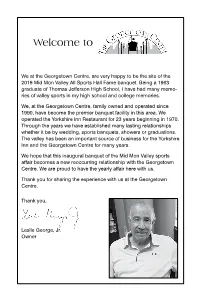 Welcome to
We at the Georgetown Centre, are very happy to be the site of the
2019 Mid Mon Valley All Sports Hall Fame banquet. Being a 1963
graduate of Thomas Jefferson High School, I have had many memo-
ries of valley sports in my high school and college memories.
We, at the Georgetown Centre, family owned and operated since
1990, have become the premier banquet facility in this area. We
operated the Yorkshire Inn Restaurant for 23 years beginning in 1970.
Through the years we have established many lasting relationships
whether it be by wedding, sports banquets, showers or graduations.
The valley has been an important source of business for the Yorkshire
Inn and the Georgetown Centre for many years.
We hope that this inaugural banquet of the Mid Mon Valley sports
affair becomes a now reoccurring relationship with the Georgetown
Centre. We are proud to have the yearly affair here with us.
Thank you for sharing the experience with us at the Georgetown
Centre.
Thank you,
Leslie George, Jr.
Owner